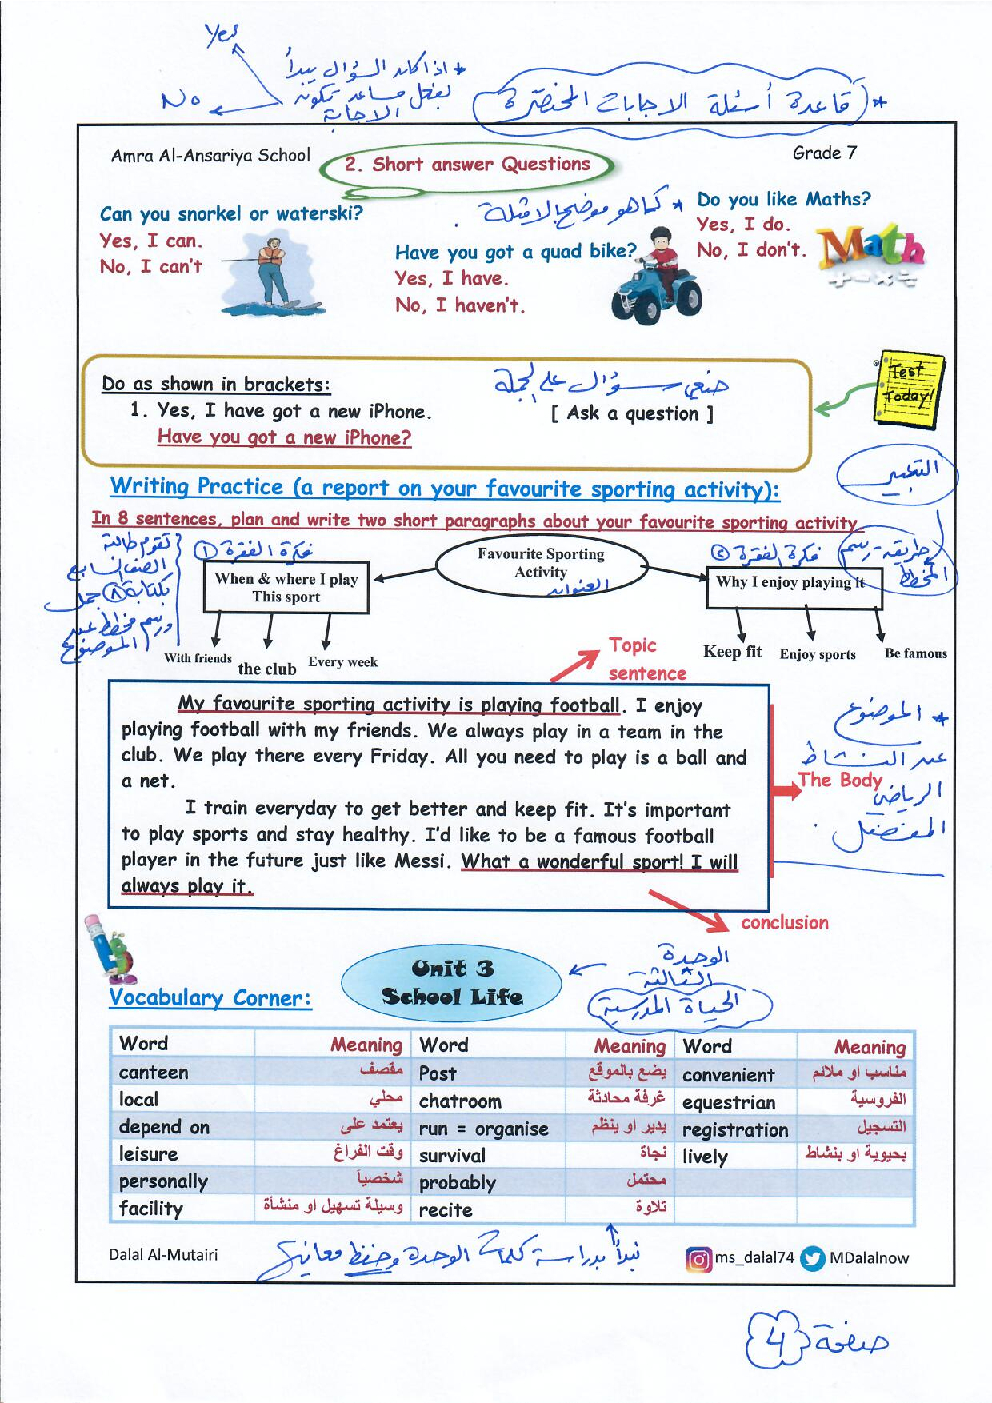 Yes
* اذا كان السؤال يبدأ
بفعل مساعد تكون
الاجابة
No
* قاعدة أسئلة الاجابات المختصرة
Amra Al-Ansariya School
2. Short answer Questions
Grade 7
Can you snorkel or waterski?
Yes, I can.
No, I can't
* كما هو موضح بالامثلة
Have you got a quad bike?
Yes, I have.
No, I haven't.
Do you like Maths?
Yes, I do.
No, I don't.
Math
Do as shown in brackets:
ضعي سؤال على الجملة
1. Yes, I have got a new iPhone. [ Ask a question ]
Have you got a new iPhone?
Test
Today!
التعبير
Writing Practice (a report on your favourite sporting activity):
In 8 sentences, plan and write two short paragraphs about your favourite sporting activity
تقوم طالبة
الصف السابع
بكتابة ٨ جمل
ورسم مخطط عن
الموضوع
فكرة الفقرة ①
Favourite Sporting
Activity
العنوان
فكرة الفقرة ②
طريقة رسم
المخطط
When & where I play
This sport
Why I enjoy playing it
With friends
the club
Every week
Keep fit
Enjoy sports
Be famous
Topic
sentence
My favourite sporting activity is playing football. I enjoy
playing football with my friends. We always play in a team in the
club. We play there every Friday. All you need to play is a ball and
a net.
I train everyday to get better and keep fit. It's important
to play sports and stay healthy. I'd like to be a famous football
player in the future just like Messi. What a wonderful sport! I will
always play it.
* الموضوع
عن النشاط
The Body
الرياضي
المفضل
conclusion
Unit 3
School Life
الوحدة
الثالثة
الحياة المدرسية
Vocabulary Corner:
Word Meaning Word Meaning Word Meaning
canteen مقصف Post يضع بالموقع convenient مناسب او ملائم
local محلي chatroom غرفة محادثة equestrian الفروسية
depend on يعتمد على run = organise يدير او ينظم registration التسجيل
leisure وقت الفراغ survival نجاة lively بحيوية او بنشاط
personally شخصياً probably محتمل
facility وسيلة تسهيل او منشأة recite تلاوة
Dalal Al-Mutairi
نبدأ بدراسة كلمات الوحدة وحفظ معانيها
ms_dalal74
MDalalnow
صفحة 4